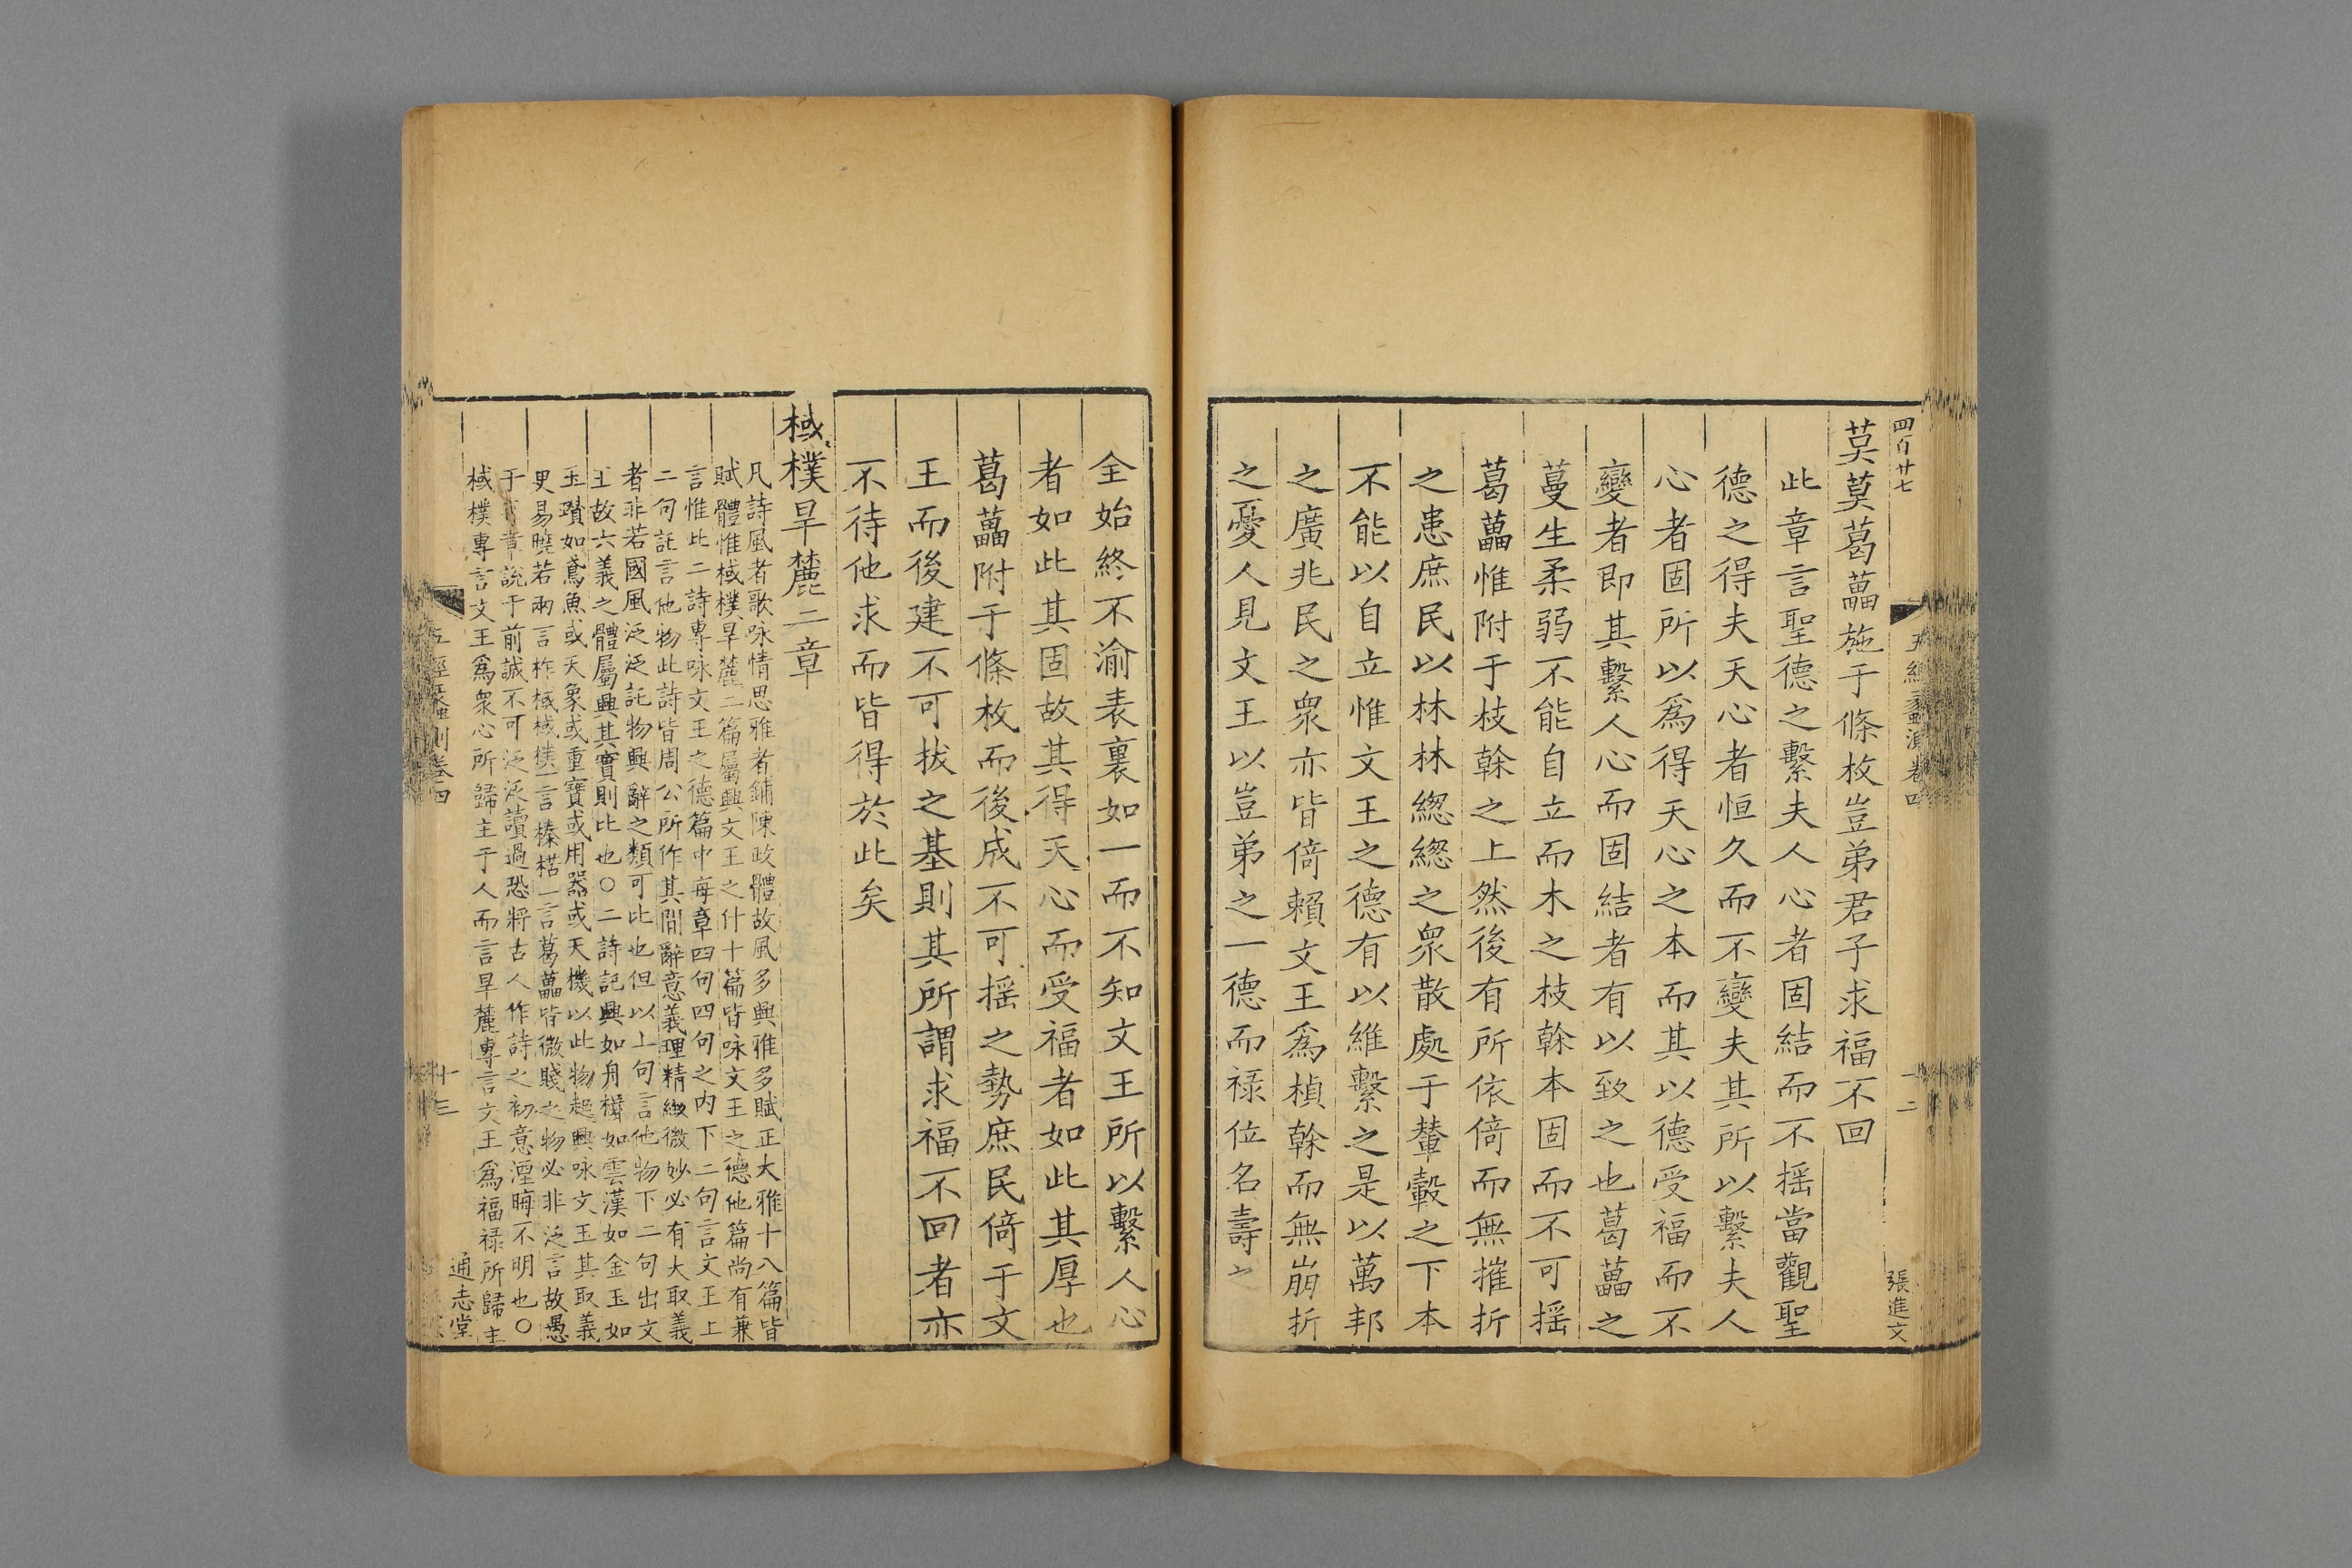 四百廿七
五經蠡測卷四
十二
張進文
莫莫葛藟施于條枚豈弟君子求福不回
此章言聖德之繫夫人心者固結而不揺當觀聖
德之得夫天心者恒久而不變夫其所以繫夫人
心者固所以爲得天心之本而其以德受福而不
變者即其繫人心而固結者有以致之也葛藟之
蔓生柔弱不能自立而木之枝榦本固而不可揺
葛藟惟附于枝榦之上然後有所依倚而無摧折
之患庶民以林林緫緫之衆散處于輦轂之下本
不能以自立惟文王之德有以維繫之是以萬邦
之廣兆民之衆亦皆倚賴文王爲楨榦而無崩折
之憂人見文王以豈弟之一德而禄位名壽之
全始終不渝表裏如一而不知文王所以繫人心
者如此其固故其得天心而受福者如此其厚也
葛藟附于條枚而後成不可揺之勢庶民倚于文
王而後建不可拔之基則其所謂求福不回者亦
不待他求而皆得於此矣
棫樸旱麓二章
凡詩風者歌咏情思雅者鋪陳政體故風多興雅多賦正大雅十八篇皆
賦體惟棫樸旱麓二篇屬興文王之什十篇皆咏文王之德他篇尚有兼
言惟此二詩專咏文王之德篇中每章四句四句之内下二句言文王上
二句託言他物此詩皆周公所作其間辭意義理精緻微妙必有大取義
者非若國風泛泛託物興辭之類可比也但以上句言他物下二句出文
王故六義之體屬興其實則比也○二詩託興如舟楫如雲漢如金玉如
玉瓚如鳶魚或天象或重寶或用器或天機以此物起興咏文王其取義
更易曉若兩言柞棫棫樸一言榛楛一言葛藟皆微賤之物必非泛言故愚
于章説于前誠不可泛泛讀過恐將古人作詩之初意湮晦不明也○
棫樸專言文王爲衆心所歸主于人而言旱麓專言文王爲福禄所歸主
五經蠡測卷四
十三
通志堂